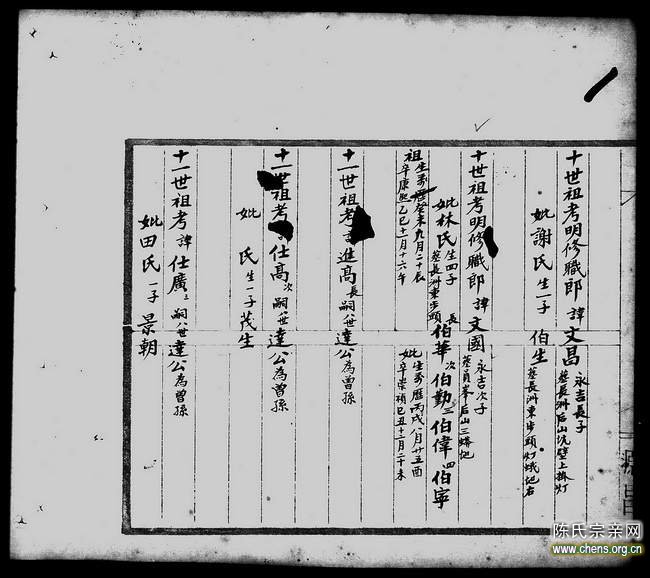 十世祖考明修職郎諱文昌 永吉長子 墓長洲后山坑壁上掛灯
妣謝氏生一子 伯生 墓長洲東步頭灯蛾地右
十世祖考明修職郎諱文國 永吉次子 墓員峯后山三塘地
妣林氏生四子 墓長洲東步頭 長伯華 次伯勤 三伯偉 四伯寧
祖生萬曆癸未九月二十辰 卒康熙乙巳十一月十六午 妣生萬曆丙戌八月廿五酉 卒崇禎己丑十二月二十未
十一世祖考 進高 長 嗣八世達公為曾孫
十一世祖考 仕高 次 嗣八世達公為曾孫
妣 氏生一子茂生
十一世祖考諱仕廣 三 嗣八世達公為曾孫
妣田氏一子景朝
陈氏宗亲网
www.chens.org.cn